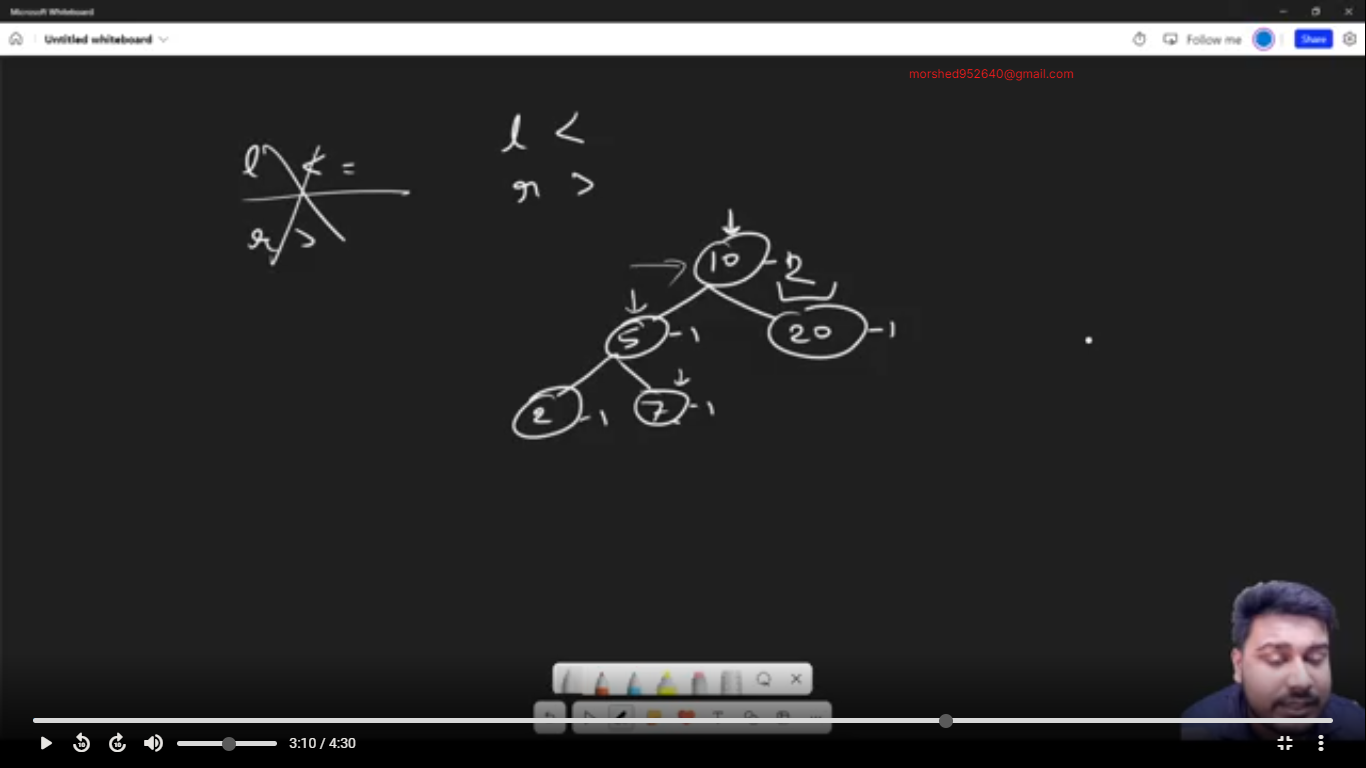 Microsoft Whiteboard
Untitled whiteboard
Follow me
Share
morshed952640@gmail.com
l <
r >
l < =
r >
10 - 2
5 - 1
20 - 1
2 - 1
7 - 1
10
10
3:10 / 4:30